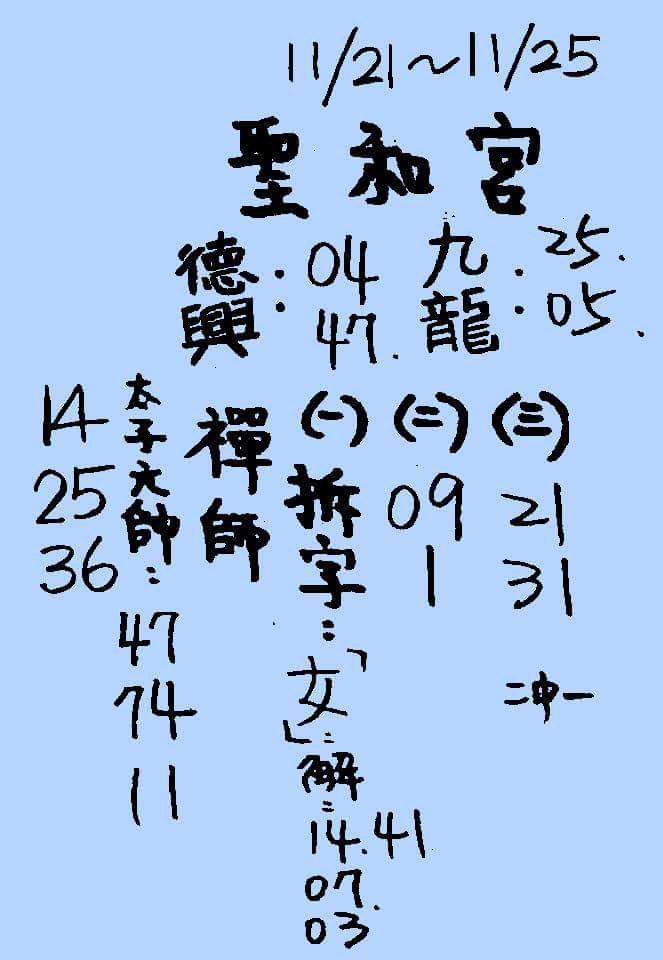 11/21~11/25
聖和宮
德興：04 47.
九龍：25. 05.
禪師
(一) 拆字：「女」：解：14.41 07. 03
(二) 09 1
(三) 21 31 二中一
太子元帥：47 74 11
14 25 36